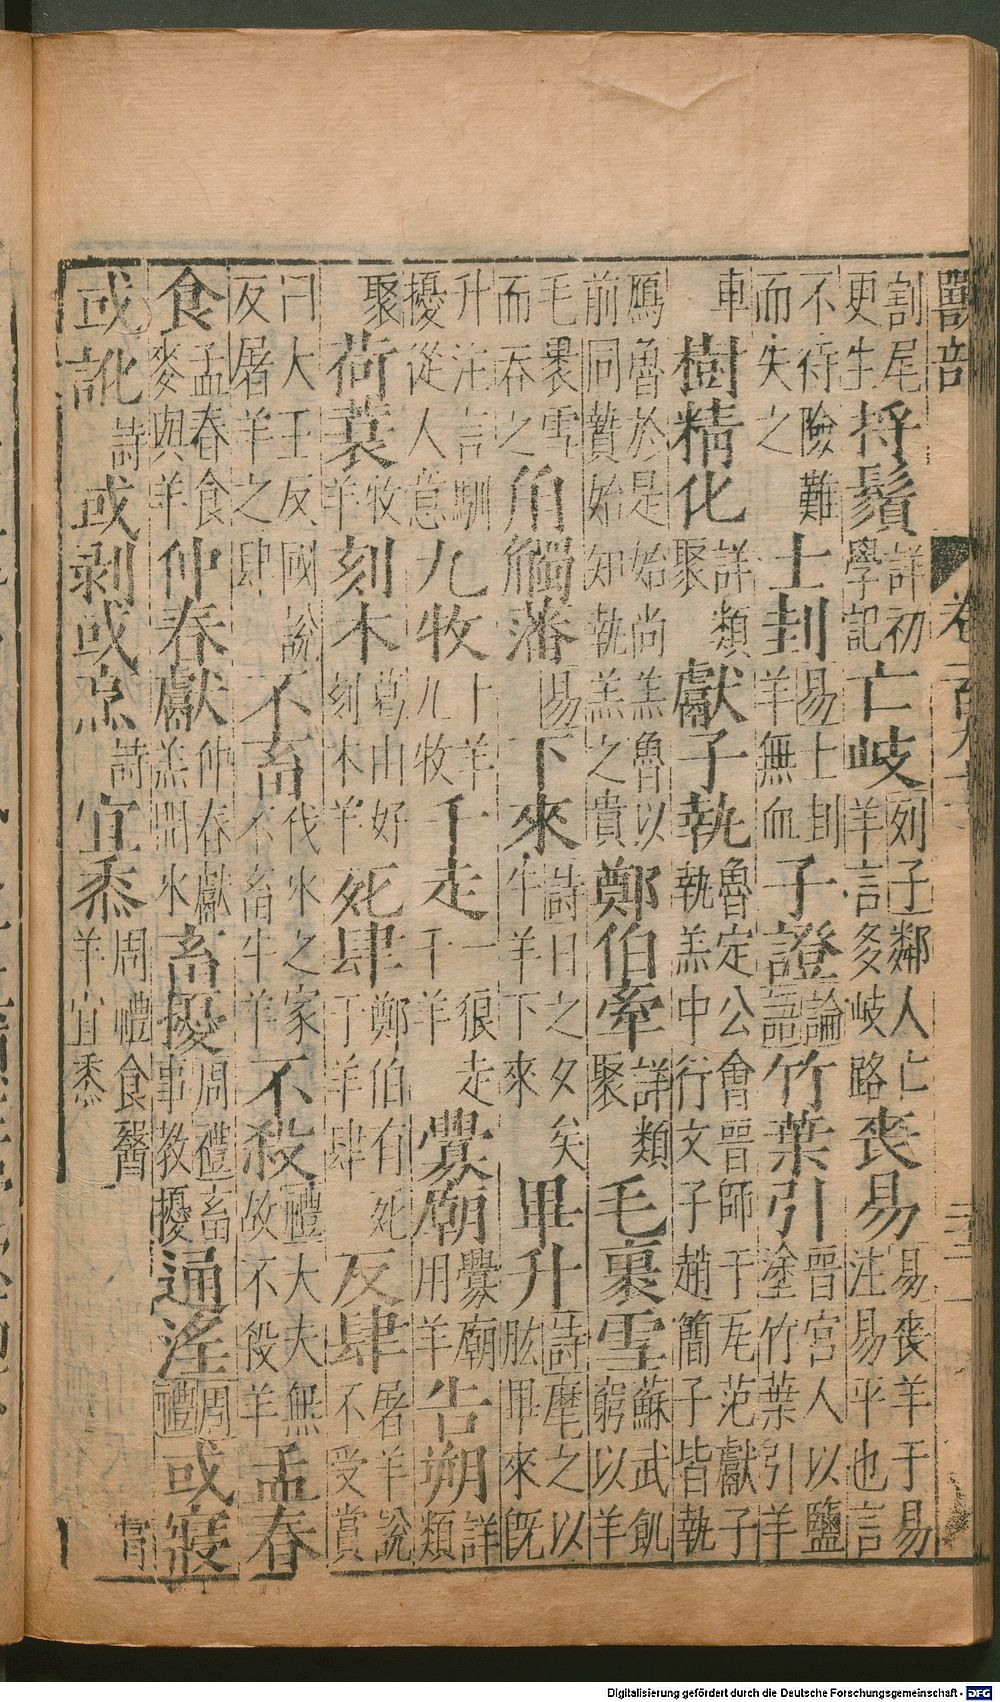 獸部 卷
割尾更生捋鬚詳初學記亡岐列子鄰人亡羊言多岐路喪易易喪羊于易注易平也言
不待險難而失之士刲易士刲羊無血子證論語竹葉引晉宮人以鹽塗竹葉引羊
車樹精化詳類聚獻子執魯定公會晉師于瓦范獻子執羔中行文子趙簡子皆執
鴈魯於是始尚羔魯以前同贄始知執羔之貴鄭伯牽詳類聚毛裹雪蘇武飢窮以羊
毛裹雪而吞之角觸藩易下來詩日之夕矣牛羊下來畢升詩麾之以肱畢來既
升注言馴擾從人意九牧十羊九牧千走一狼走千羊釁廟釁廟用羊告朔詳類
聚荷蓑牧羊刻木葛由好刻木羊死肆鄭伯有死于羊肆反肆屠羊說不受賞
曰大王反國說反屠羊之肆不畜伐氷之家不畜牛羊不殺禮大夫無故不殺羊孟春
食孟春食麥與羊仲春獻仲春獻羔開氷畜擾周禮畜事教擾通淫周禮或寢
或訛詩或剥或烹詩宜黍周禮食醫羊宜黍
Digitalisierung gefördert durch die Deutsche Forschungsgemeinschaft - DFG